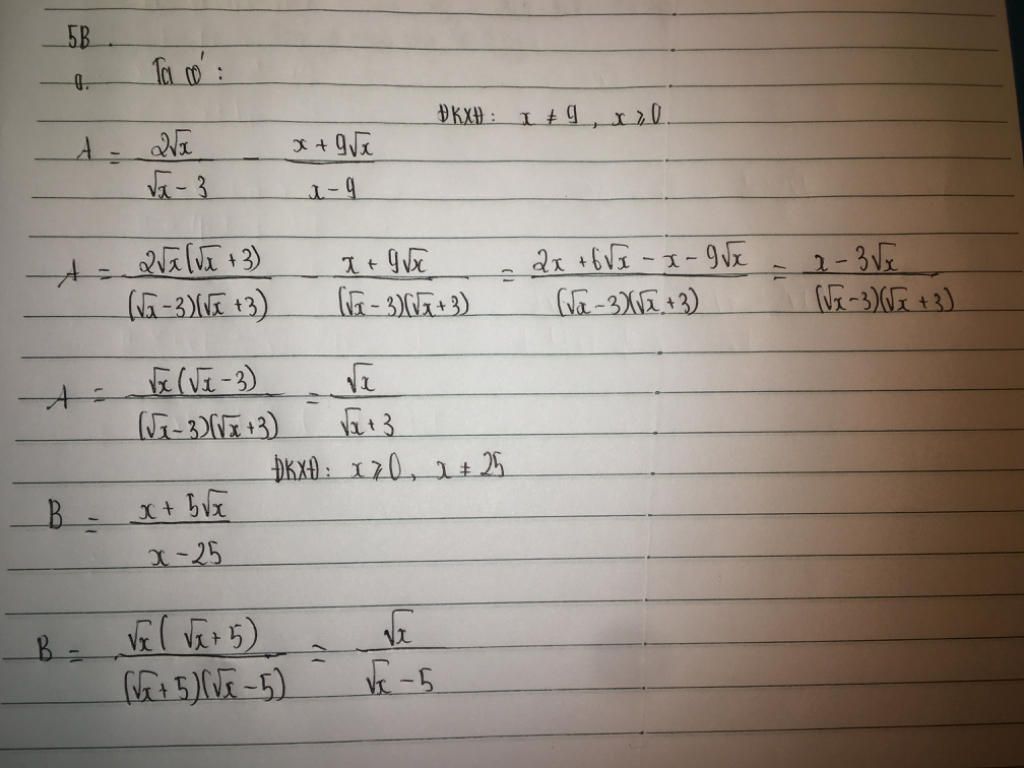 5B.
a. Ta có:
ĐKXĐ: x ≠ 9, x ⩾ 0
A = 2√x / (√x - 3) - (x + 9√x) / (x - 9)
A = 2√x(√x + 3) / (√x - 3)(√x + 3) - (x + 9√x) / (√x - 3)(√x + 3) = (2x + 6√x - x - 9√x) / (√x - 3)(√x + 3) = (x - 3√x) / (√x - 3)(√x + 3)
A = √x(√x - 3) / (√x - 3)(√x + 3) = √x / (√x + 3)
ĐKXĐ: x ⩾ 0, x ≠ 25
B = (x + 5√x) / (x - 25)
B = √x(√x + 5) / (√x + 5)(√x - 5) = √x / (√x - 5)